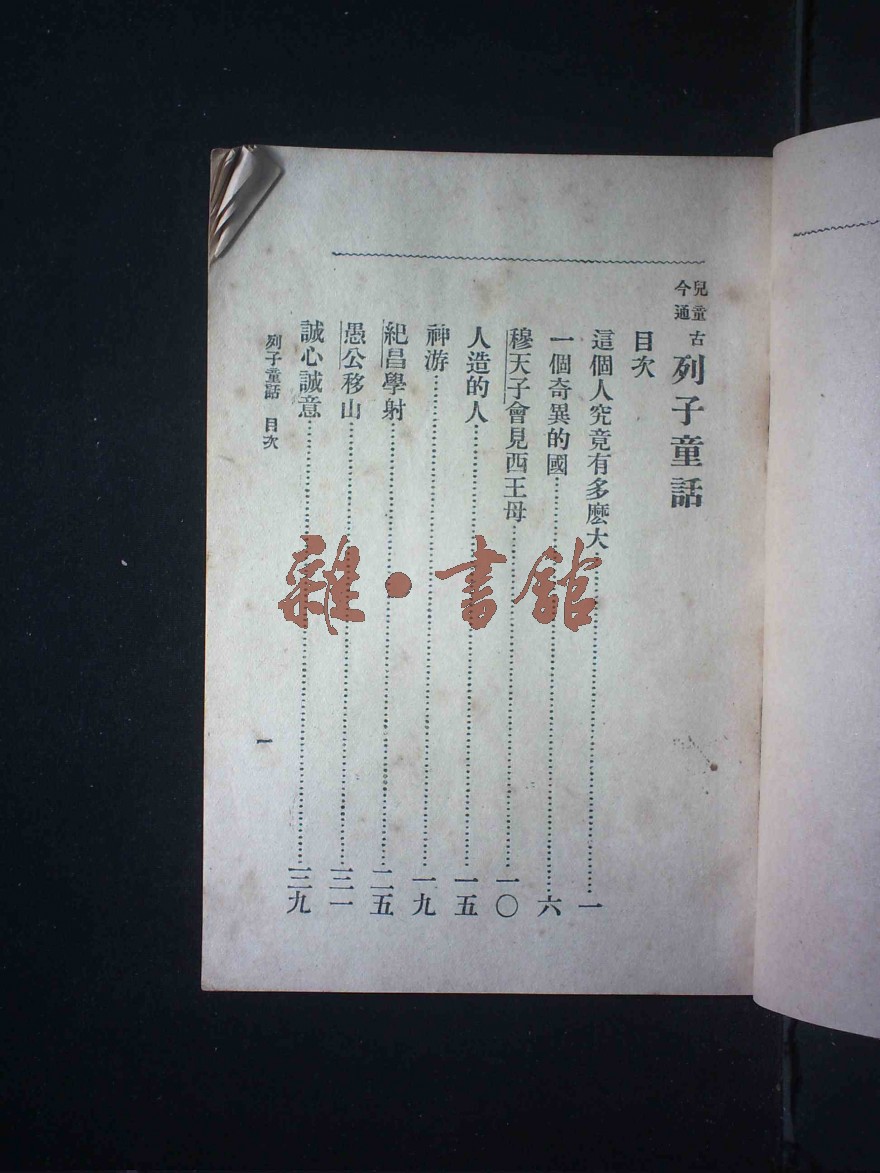 兒童古今通 列子童話
目次
這個人究竟有多麽大……一
一個奇異的國……六
穆天子會見西王母……一〇
人造的人……一五
神游……一九
紀昌學射……二五
愚公移山……三一
誠心誠意……三九
列子童話 目次
一
雜·書館